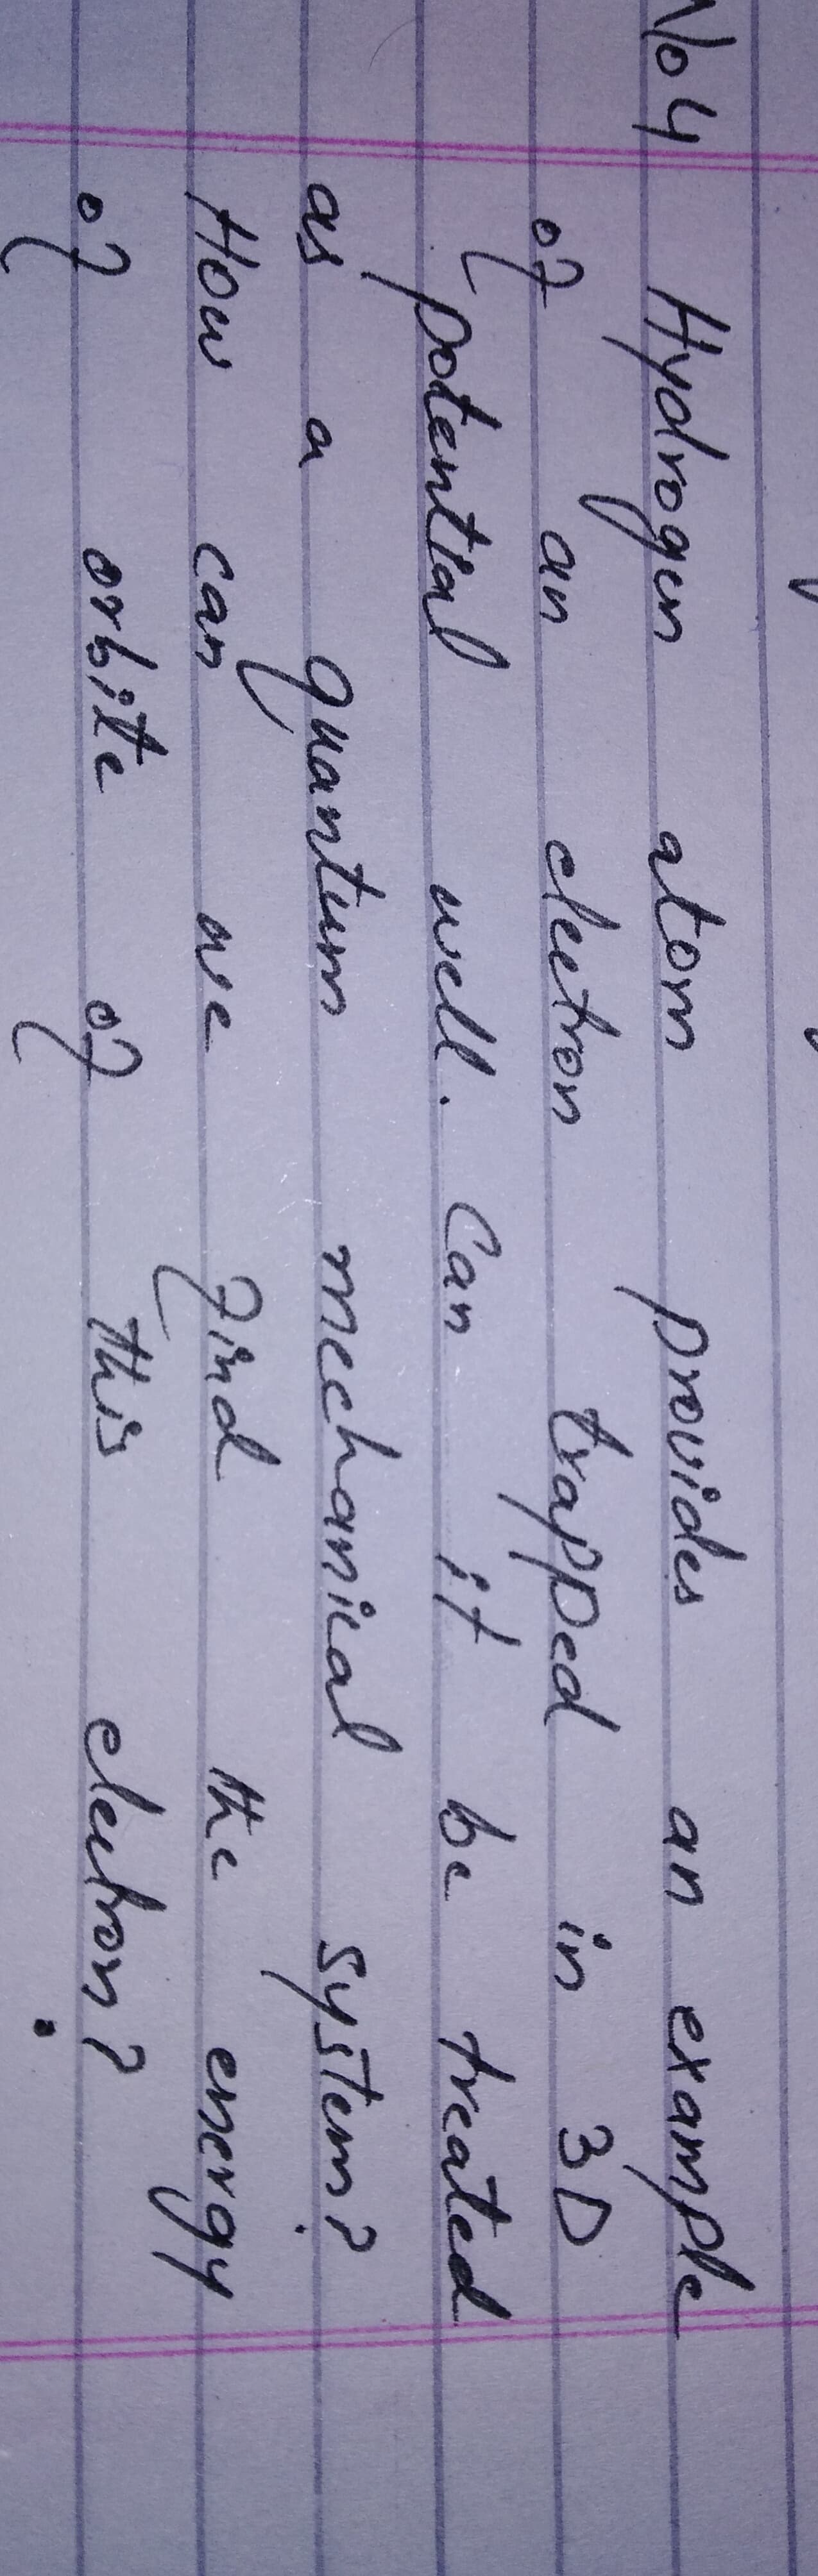 No 4 Hydrogen atom provides an example
of an electron trapped in 3D
potential well. Can it be treated
as a quantum mechanical system?
How can we find the energy
of orbite of this electron?